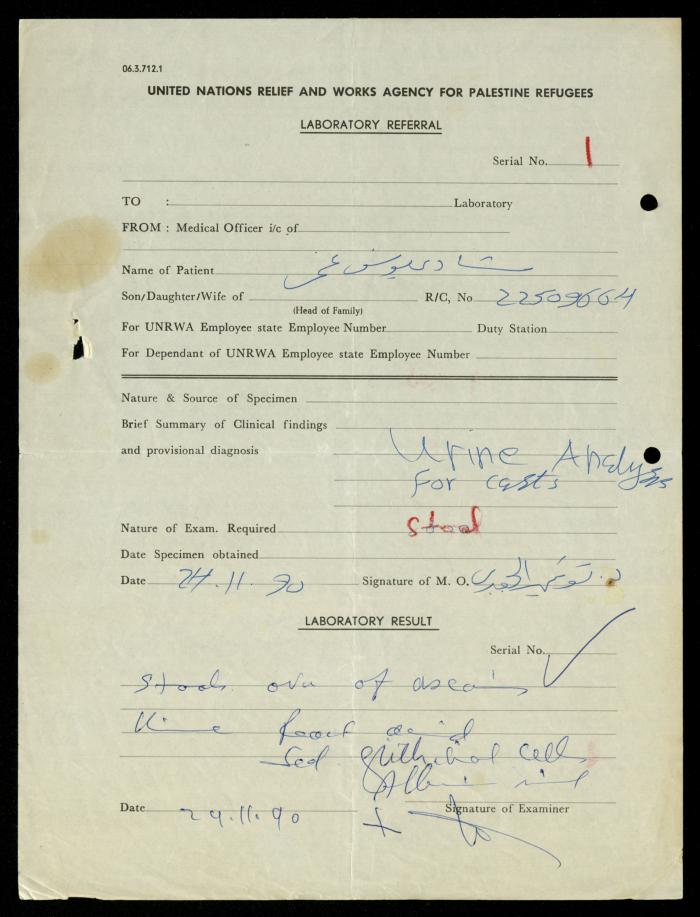 06.3.712.1
UNITED NATIONS RELIEF AND WORKS AGENCY FOR PALESTINE REFUGEES
LABORATORY REFERRAL
Serial No. 1
TO : Laboratory
FROM : Medical Officer i/c of
Name of Patient
Son/Daughter/Wife of R/C, No 22509664
(Head of Family)
For UNRWA Employee state Employee Number Duty Station
For Dependant of UNRWA Employee state Employee Number
Nature & Source of Specimen
Brief Summary of Clinical findings
and provisional diagnosis
Urine Analysis
For casts
Nature of Exam. Required Stool
Date Specimen obtained
Date 24.11.90 Signature of M. O.
LABORATORY RESULT
Serial No.
Stools ova of ascaris
Urine React acid
Sed epithelial cells
Date 24.11.90 Signature of Examiner